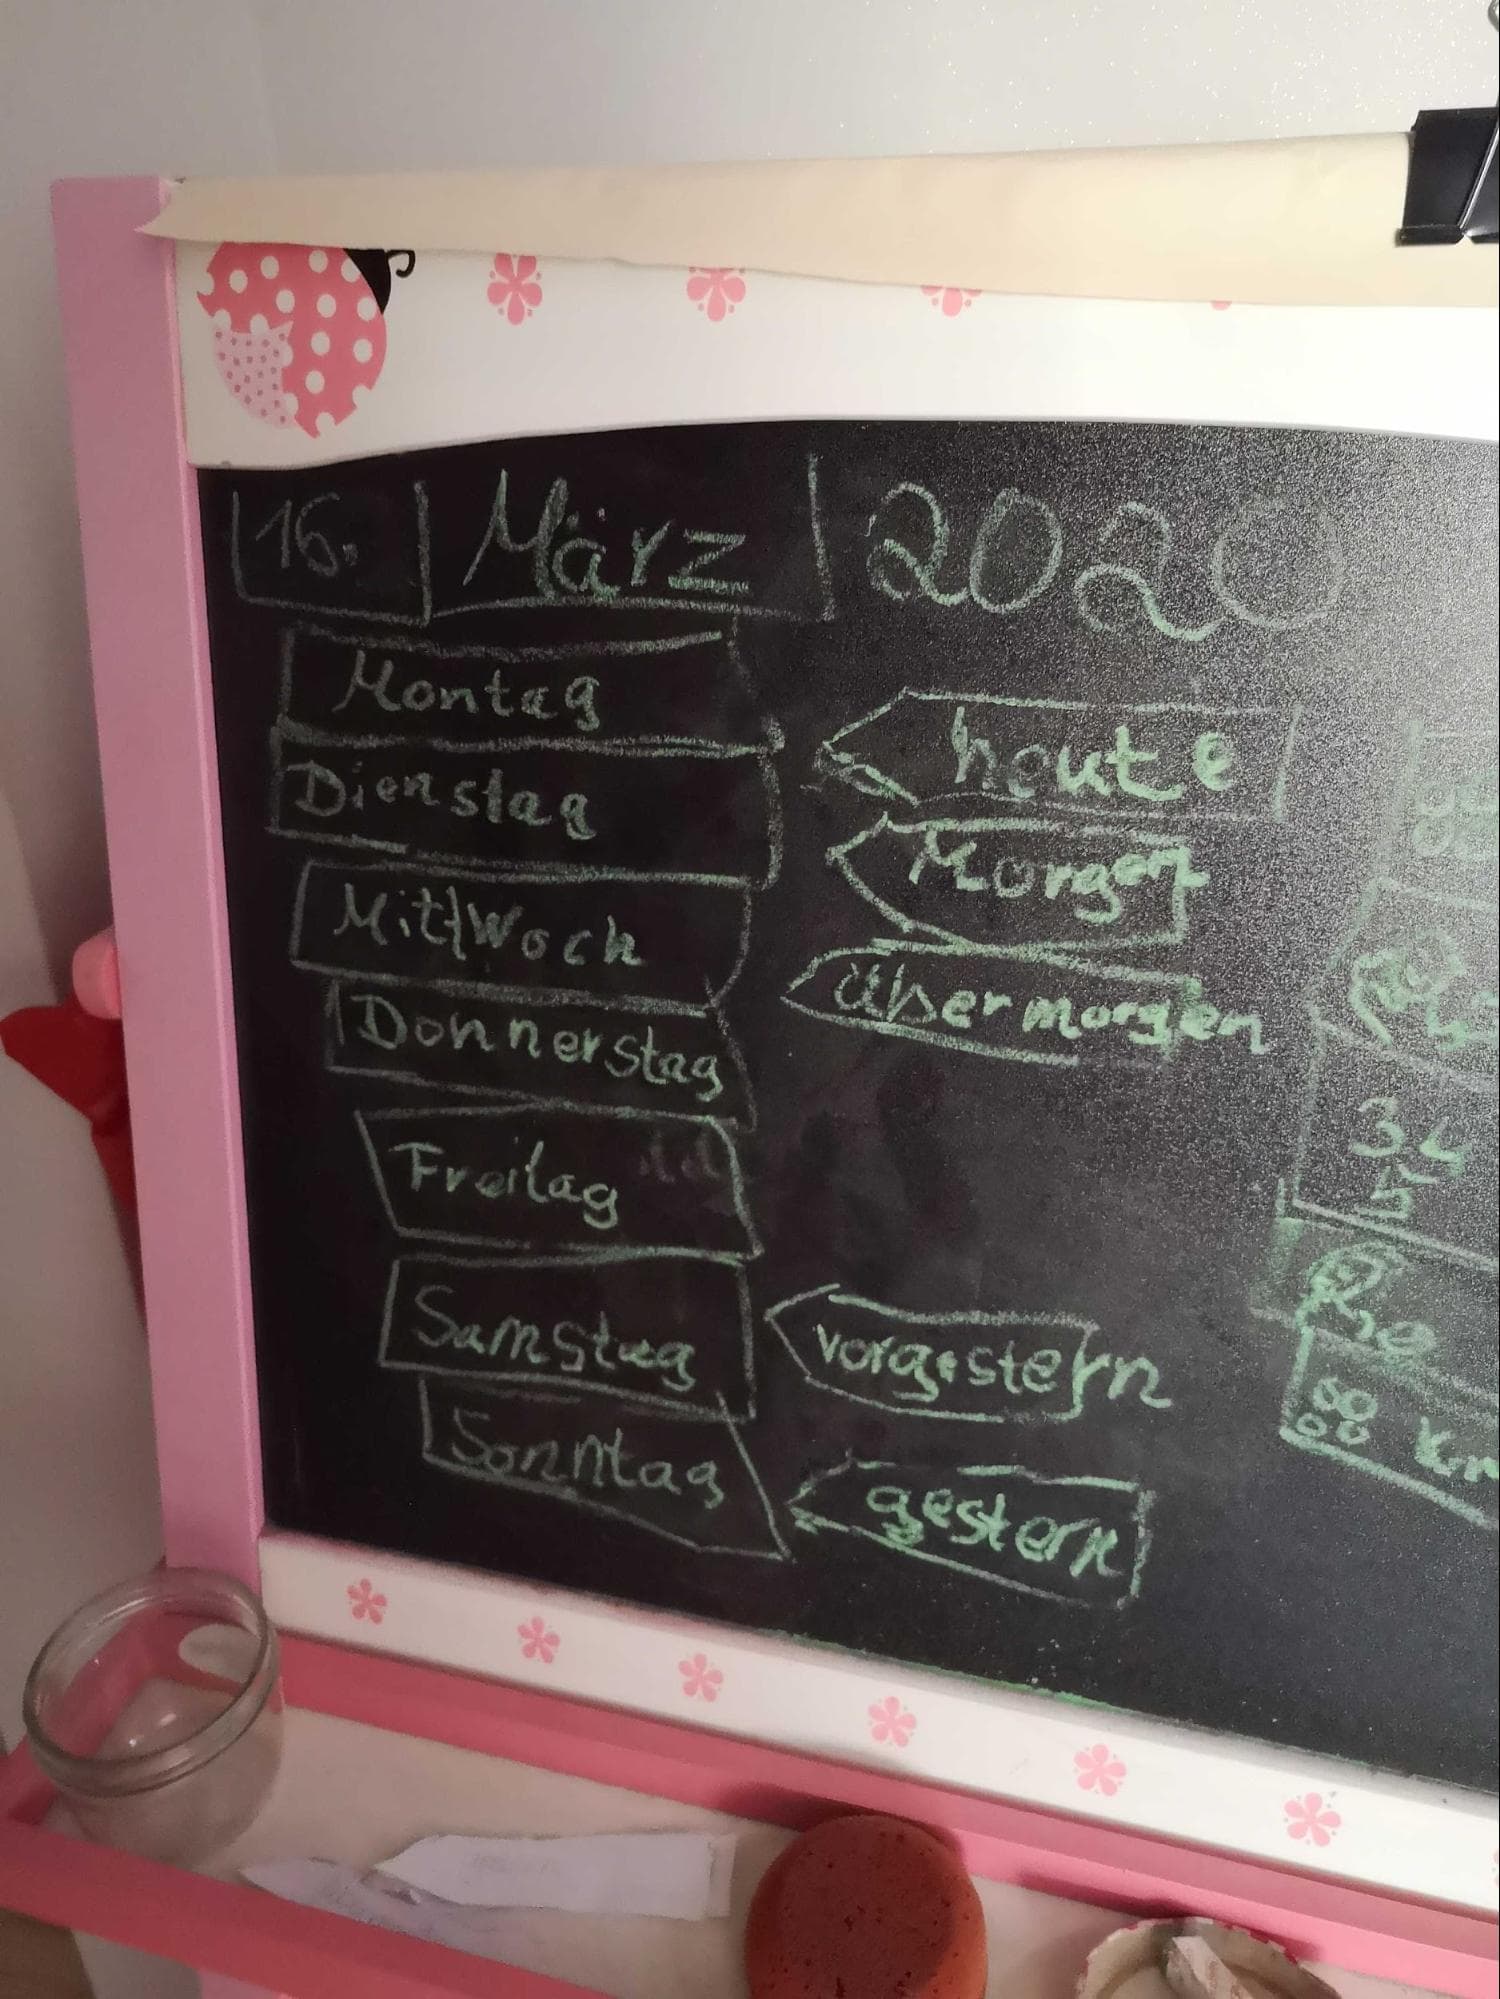 16. März 2020
Montag
heute
Dienstag
Morgen
Mittwoch
übermorgen
Donnerstag
Freitag
Samstag
vorgestern
Sonntag
gestern
3 4
5